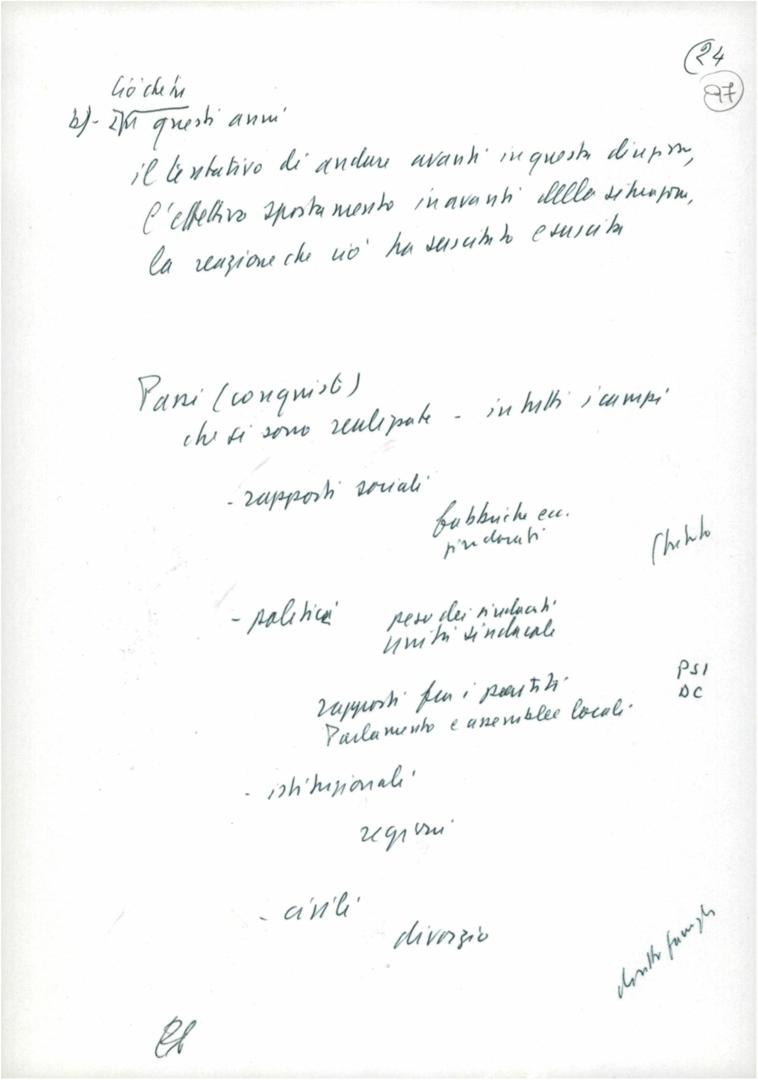 24
97
Ciò che in
b)- questi anni
il tentativo di andare avanti in questa direzione,
l'effettivo spostamento in avanti della situazione,
la reazione che ciò ha suscitato e suscita
Passi (conquiste)
che si sono realizzate - in tutti i campi
- rapporti sociali
fabbriche ecc.
sindacati
Statuto
- politici peso dei sindacati
unità sindacale
rapporti fra i partiti PSI
Parlamento e assemblee locali DC
- istituzionali
regioni
- civili
divorzio
diritto famiglia